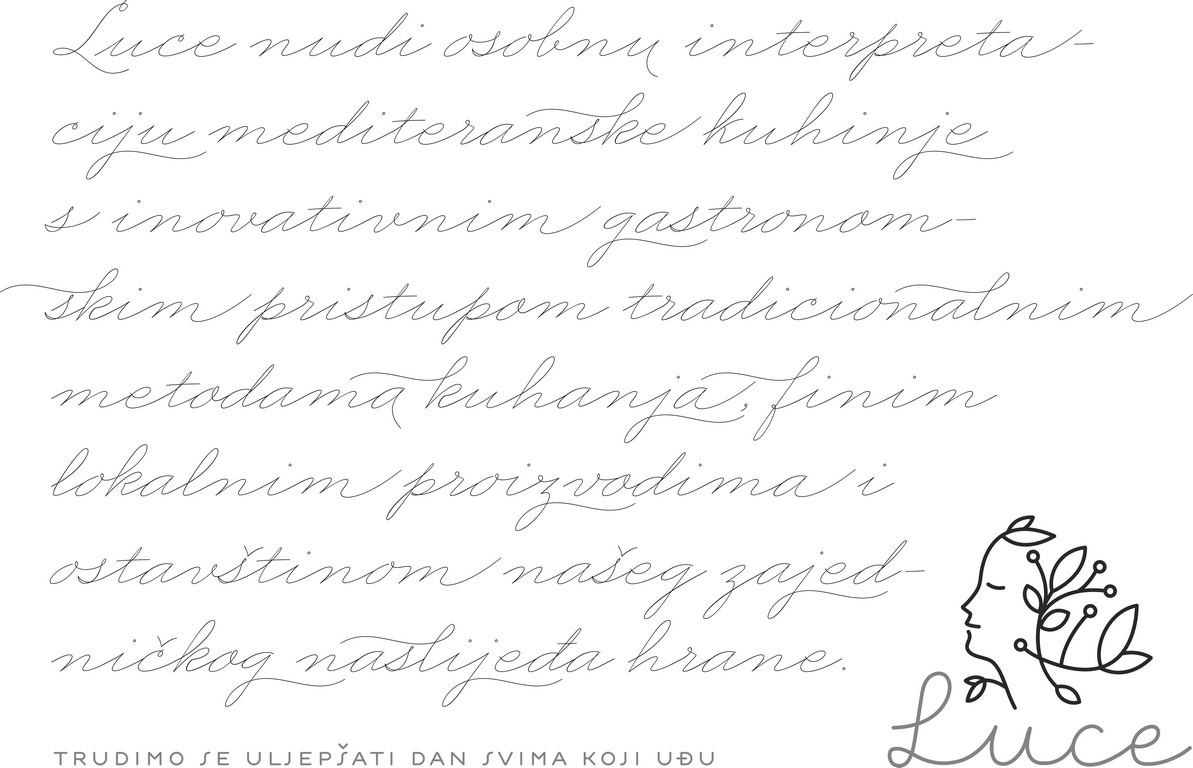 Luce nudi osobnu interpreta-
ciju mediteranske kuhinje
s inovativnim gastronom-
skim pristupom tradicionalnim
metodama kuhanja, finim
lokalnim proizvodima i
ostavštinom našeg zajed-
ničkog naslijeđa hrane.
Luce
TRUDIMO SE ULJEPŠATI DAN SVIMA KOJI UĐU